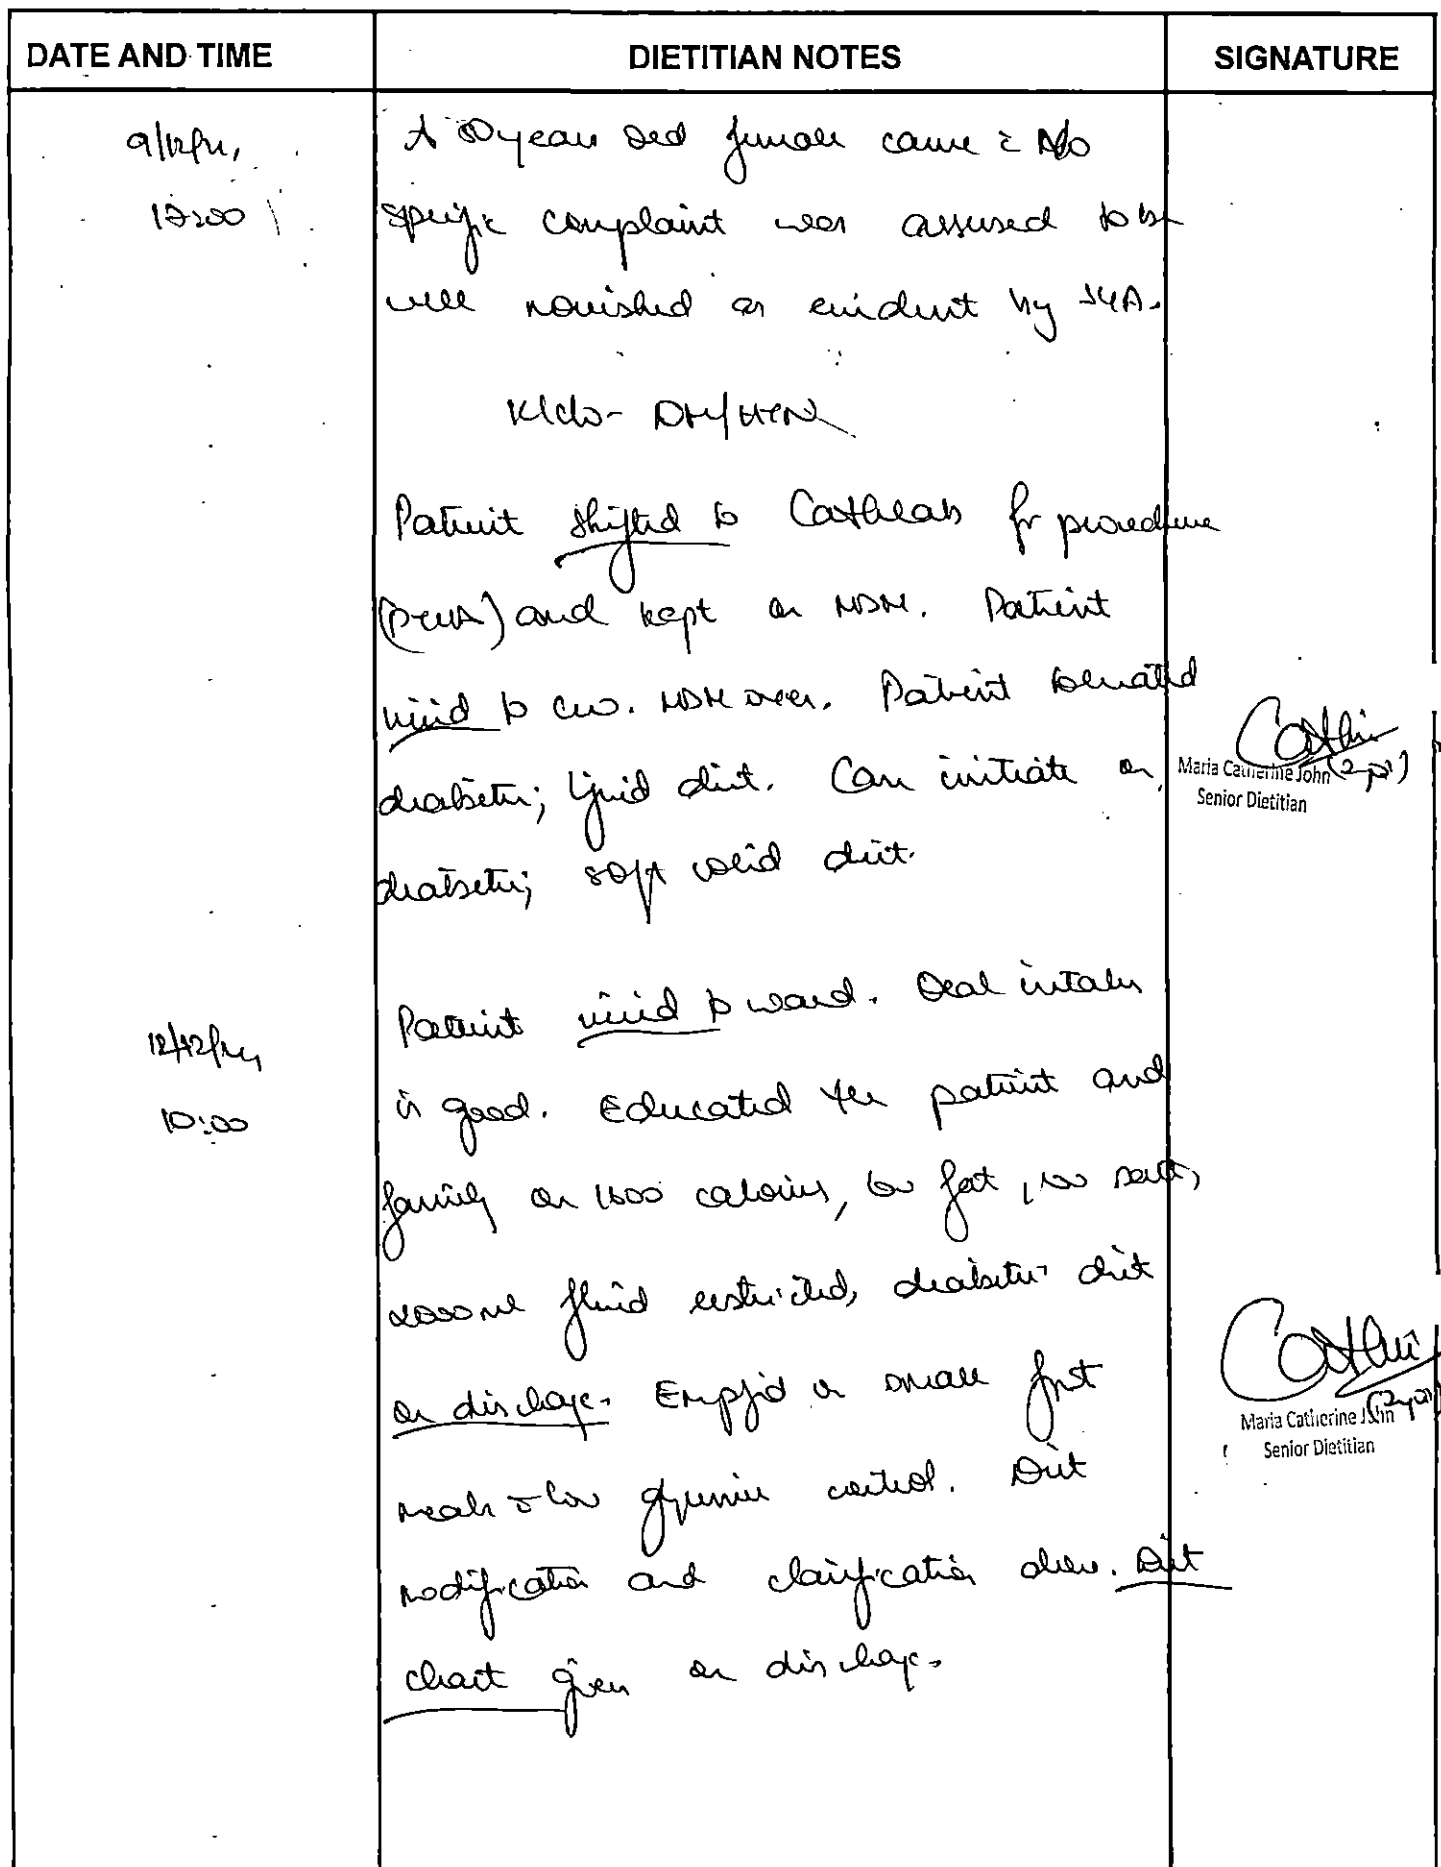 DATE AND TIME DIETITIAN NOTES SIGNATURE
A year old female came c̄ No
specific complaint was assessed to be
well nourished as evident by SGA.
K/c/o- DM/HTN
Patient shifted to Cathlab for procedure
and kept on NBM. Patient
to NBM over. Patient tolerated
diabetic, liquid diet. Can initiate on
diabetic, soft solid diet.
Maria Catherine John
Senior Dietitian
12/12/24
10:00
Patient to ward. Oral intake
is good. Educated the patient and
family on calories, low fat, salt,
2000 ml fluid restricted, diabetic diet
on discharge. on small
meals c̄ low control. Diet
modification and clarification done. Diet
chart given on discharge.
Maria Catherine John
Senior Dietitian